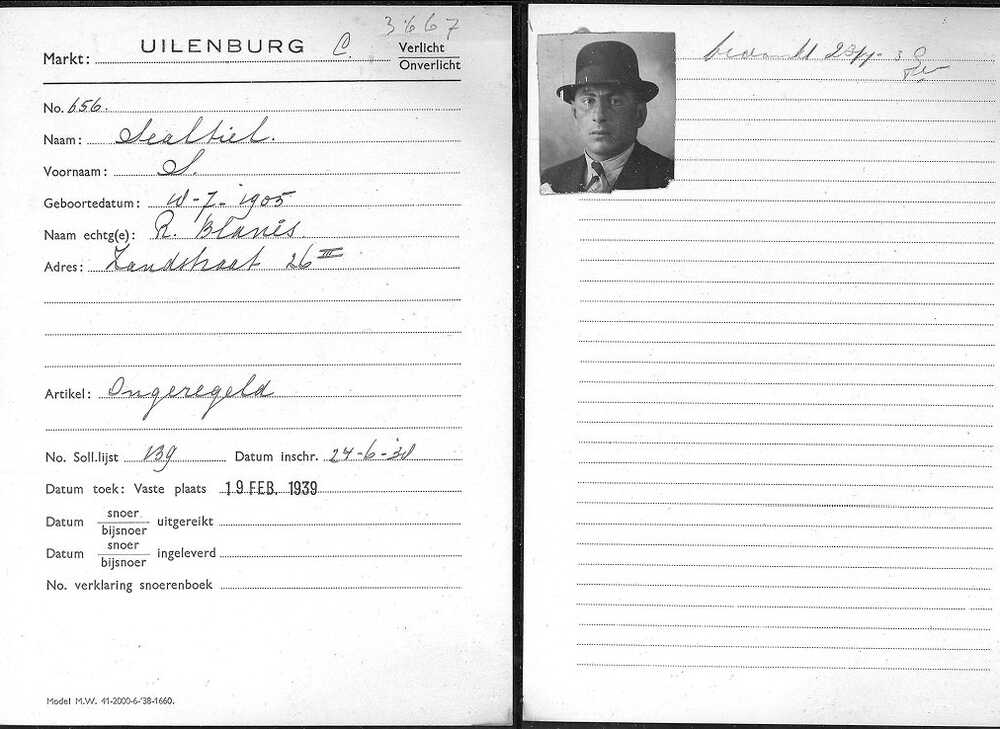 3667
Markt: UILENBURG C. Verlicht
Onverlicht
No. 656.
Naam: Sealtiel.
Voornaam: S.
Geboortedatum: -7-1905
Naam echtg(e): R. Blanes
Adres: Zandstraat 26 III
Artikel: Ongeregeld
No. Soll.lijst 139 Datum inschr. 24-6-
Datum toek: Vaste plaats 19 FEB. 1939
Datum snoer uitgereikt
bijsnoer
Datum snoer ingeleverd
bijsnoer
No. verklaring snoerenboek
Model M.W. 41-2000-6-'38-1660.